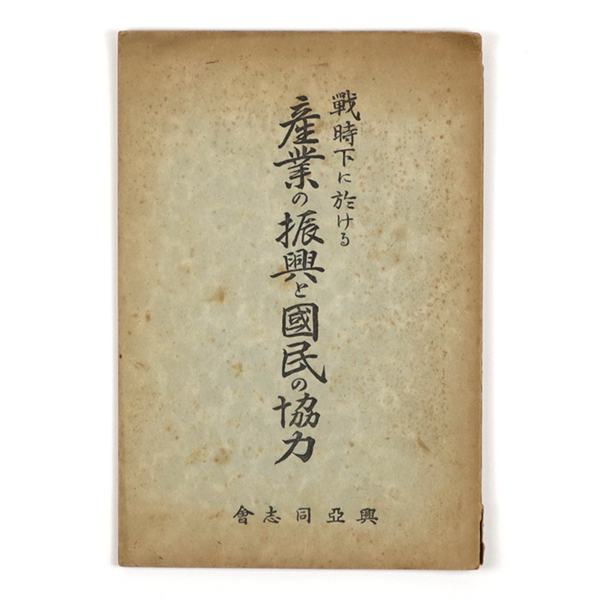 戰時下に於ける
産業の振興と國民の協力
興亞同志會